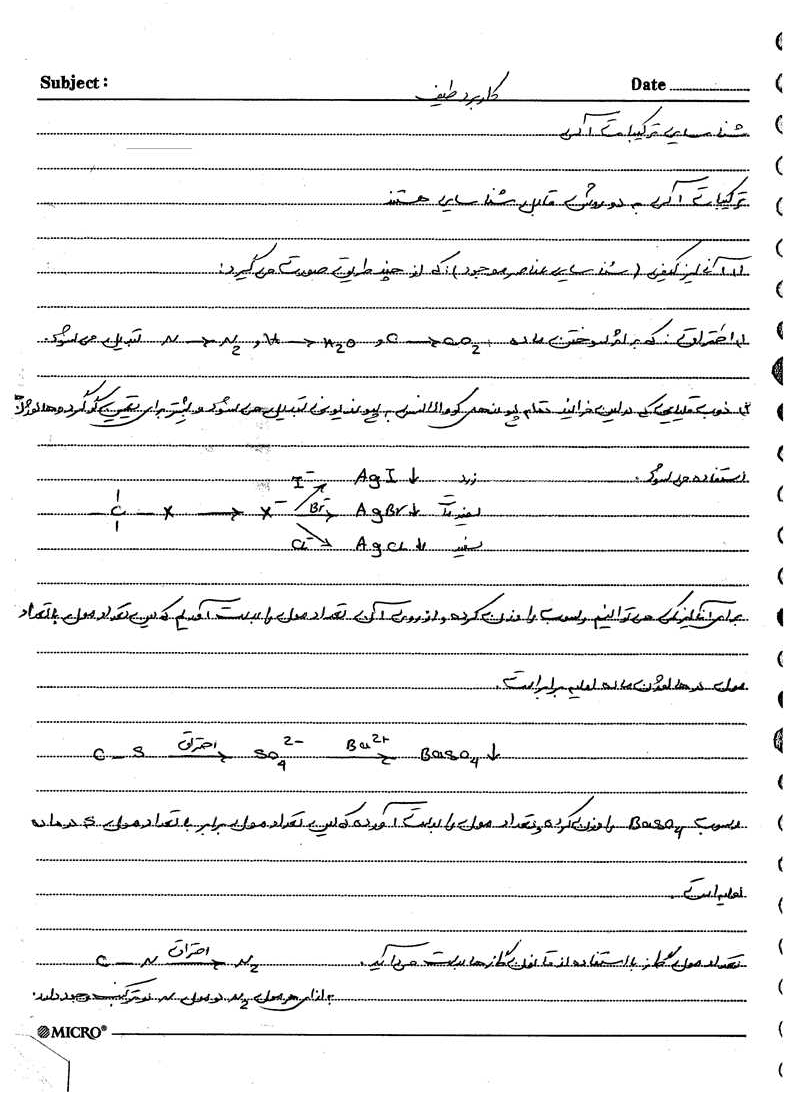 Subject :
Date
کاربرد طیف
شناسایی ترکیبات آلی
ترکیبات آلی به دو روش قابل شناسایی هستند
۱) آنالیز کیفی (شناسایی عناصر موجود): که از چند طریق صورت می گیرد:
۱. احتراق: که بر اثر سوختن ماده C → CO2 و H → H2O و N → N2 تبدیل می شود.
۲. ذوب قلیایی که در این فرآیند تمام پیوندهای کووالانسی به پیوند یونی تبدیل می شود و بیشتر برای تعیین گوگرد و هالوژن
استفاده می شود.
I⁻ AgI↓ زرد
–C–X → X⁻ Br⁻ AgBr↓
Cl⁻ AgCl↓ سفید
برای آنالیز کمی می توانیم رسوب را وزن کرده و از روی آن تعداد مول را بدست آوریم که این تعداد مول با تعداد
مول در هالوژن ماده اولیه برابر است.
C – S احتراق→ SO4²⁻ Ba²⁺→ BaSO4↓
رسوب BaSO4 را وزن کرده و تعداد مول را بدست آورده که این تعداد مول برابر با تعداد مول S در ماده
اولیه است.
تعداد مول گاز با استفاده از قانون گازها بدست می آید. C – N احتراق→ N2
به ازای هر مول N2 دو مول N در ترکیب وجود دارد.
MICRO®